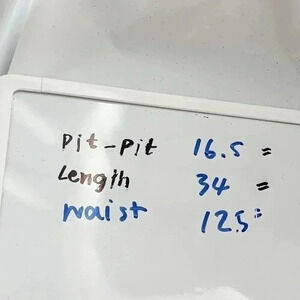 Pit-Pit 16.5 =
Length 34 =
waist 12.5=